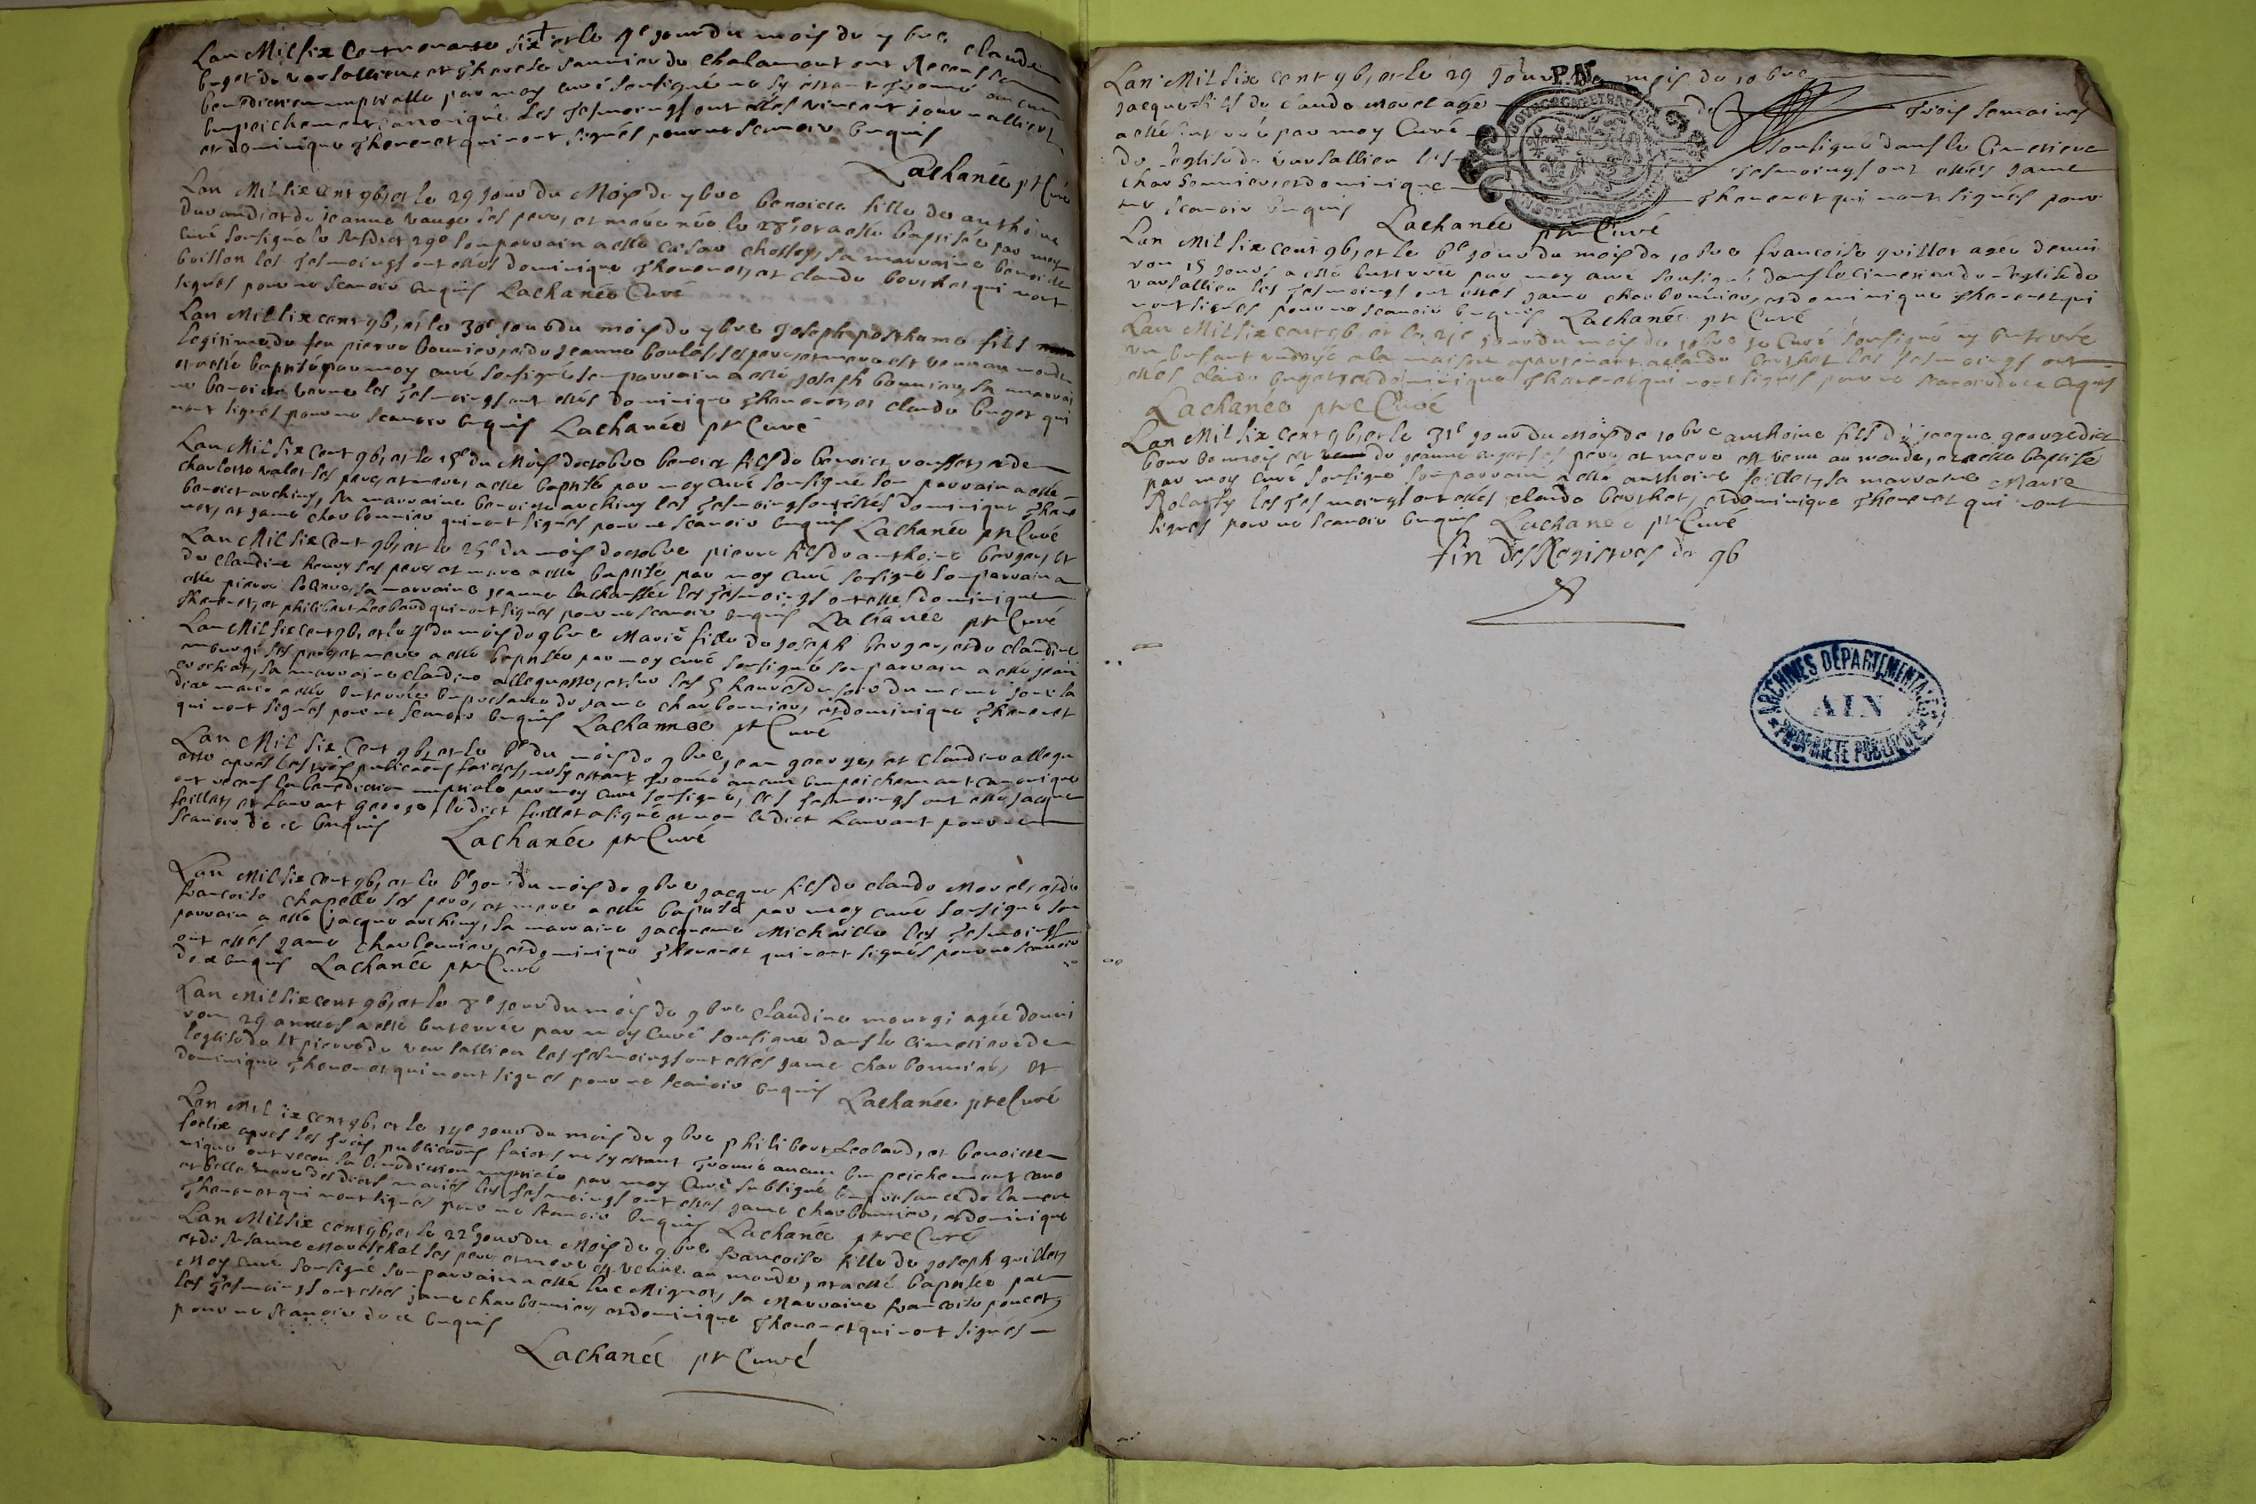 Lan Mil six Cent nonante six et le 4e jour du mois de 7bre claude
buget de versallieu et therese saunier de Chalamont ont Receu la
benediction nuptialle par moy curé soubsigné ne sy estant trouvé aucun
empeichement canonique les tesmoings ont estés vincent
et dominique thevenet qui nont signés pour ne scavoir enquis
Lachanée ptr Curé
Lan Mil six cent 96, et le 29 jour du Mois de 7bre benoicte fille de anthoine
et de jeanne ses pere, et mere née le 28e et a esté baptisée par moy
curé sousigné le susdict 29e son parrain a esté sa marraine benoicte
les tesmoings ont estés dominique thevenet, et claude berthet qui nont
signés pour ne scavoir enquis Lachanée Curé
Lan Mil six cent 96, et le 30e jour du mois de 7bre Joseph posthume fils
legitime de feu pierre bonnier, et de jeanne ses pere, et mere est venu au monde
et a esté baptisé par moy curé sousigné son parrain a esté joseph bonnier, sa marrai
ne benoicte les tesmoings ont estés dominique thevenet, et claude buget qui
nont signés pour ne scavoir enquis Lachanée ptr Curé
Lan Mil six Cent 96, et le 15e du Mois doctobre benoict fils de benoict et de
charlotte valet ses pere, et mere, a esté baptisé par moy curé sousigné son parrain a esté
benoict archiny, sa marraine benoicte archiny les tesmoings ont estés dominique theve
net, et jame charbonnier qui nont signés pour ne scavoir enquis Lachanée ptr Curé
Lan Mil six Cent 96, et le 25e du mois doctobre pierre fils de anthoine berger, et
de claudine ses pere et mere a esté baptisé par moy curé sousigné son parrain a
esté pierre sa marraine jeanne les tesmoings ont estés dominique
thevenet, et philibert Leobard qui nont signés pour ne scavoir enquis Lachanée ptr Curé
Lan Mil six cent 96, et le du mois de 9bre Marie fille de joseph berger, et de claudine
mourgi ses pere, et mere a esté baptisée par moy curé sousigné son parrain a esté jean
sa marraine claudine et sur les 5 heures du soir du meme jour la
dite marie a esté enterrée en presence de jame charbonnier, et dominique thevenet
qui nont signés pour ne scavoir enquis Lachannée ptr Curé
Lan Mil six Cent 96, et le 6e du mois de 9bre, jean george, et claudine
apres les trois publicaõns faictes, ne sy estant trouvé aucun empeichemant canonique
ont receus la benediction nuptiale par moy curé sousigné, les tesmoings ont esté jacque
feillet, et Laurant george, ledict feillet a signé et non ledict Laurant pour ne
scavoir de ce enquis Lachanée ptr Curé
Lan Mil six Cent 96, et le 6e jour du mois de 9bre jacque fils de claude Morel, et de
francoise chapelle ses pere, et mere a esté baptisé par moy curé sousigné son
parrain a esté jacque archiny, sa marraine jacqueme les tesmoings
ont estés jame charbonnier, et dominique thevenet qui nont signés pour ne scavoir
de ce enquis Lachanée ptr Curé
Lan Mil six cent 96, et le 8e jour du mois de 9bre claudine mourgi agée denvi
ron 29 années a esté enterrée par moy curé sousigné dans le cimetiere de
leglise de St pierre de versallieu les tesmoings ont estés jame charbonnier, et
dominique thevenet qui nont signés pour ne scavoir enquis Lachanée ptre Curé
Lan Mil six cent 96, et le 19e jour du mois de 9bre philibert Leobard, et benoicte
apres les trois publicaõns faictes ne sy estant trouvé aucun empeichemant cano
nique ont receu la benediction nuptiale par moy Curé subsigné en presance de la mere
et belle mere desdicts mariés les tesmoings ont estés jame charbonnier, et dominique
thevenet qui nont signés pour ne scavoir enquis Lachanée ptre Curé
Lan Mil six cent 96, et le 22e jour du Mois de 9bre francoise fille de joseph guillet,
et de susanne Mareschal ses pere et mere est venue au monde, et a esté baptisée par
Moy curé sousigné son parrain a esté luc Mignot, sa Marraine francoise poncet
les tesmoings ont estés jame charbonnier, et dominique thevenet qui nont signés
pour ne scavoir de ce enquis
Lachanée ptr Curé
Lan Mil six cent 96, et le 29 jour du mois de 10bre
jacque fils de claude Morel agé de trois semaines
a esté enterré par moy Curé sousigné dans le Cimetiere
de leglise de versallieu les tesmoings ont estés jame
charbonnier, et dominique thevenet qui nont signés pour
ne scavoir enquis Lachanée ptre Curé
Lan Mil six cent 96, et le 6e jour du mois de 10bre francoise guillet agée denvi
ron 15 jours a esté enterrée par moy curé sousigné dans le cimetiere de leglise de
versallieu les tesmoings ont estés jame charbonnier, et dominique thevenet qui
nont signés pour ne scavoir enquis Lachanée ptr Curé
Lan Mil six cent 96 et le 21e jour du mois de 10bre je Curé sousigné ay enterré
un enfant ondoyé a la maison apartenant a claude berthet les tesmoings ont
estés claude buget, et dominique thevenet qui nont signés pour ne scavoir de ce enquis
Lachanée ptre Curé
Lan Mil six cent 96, et le 31e jour du Mois de 10bre anthoine fils de jacque george dict
et de jeanne buget ses pere, et mere est venu au monde, et a esté baptisé
par moy curé sousigné son parrain a esté anthoine feillet, sa marraine Marie
les tesmoings ont estés claude berthet, et dominique thevenet qui nont
signés pour ne scavoir enquis Lachanée ptr Curé
fin des Registres de 96
ARCHIVES DÉPARTEMENTALES
AIN
PROPRIÉTÉ PUBLIQUE